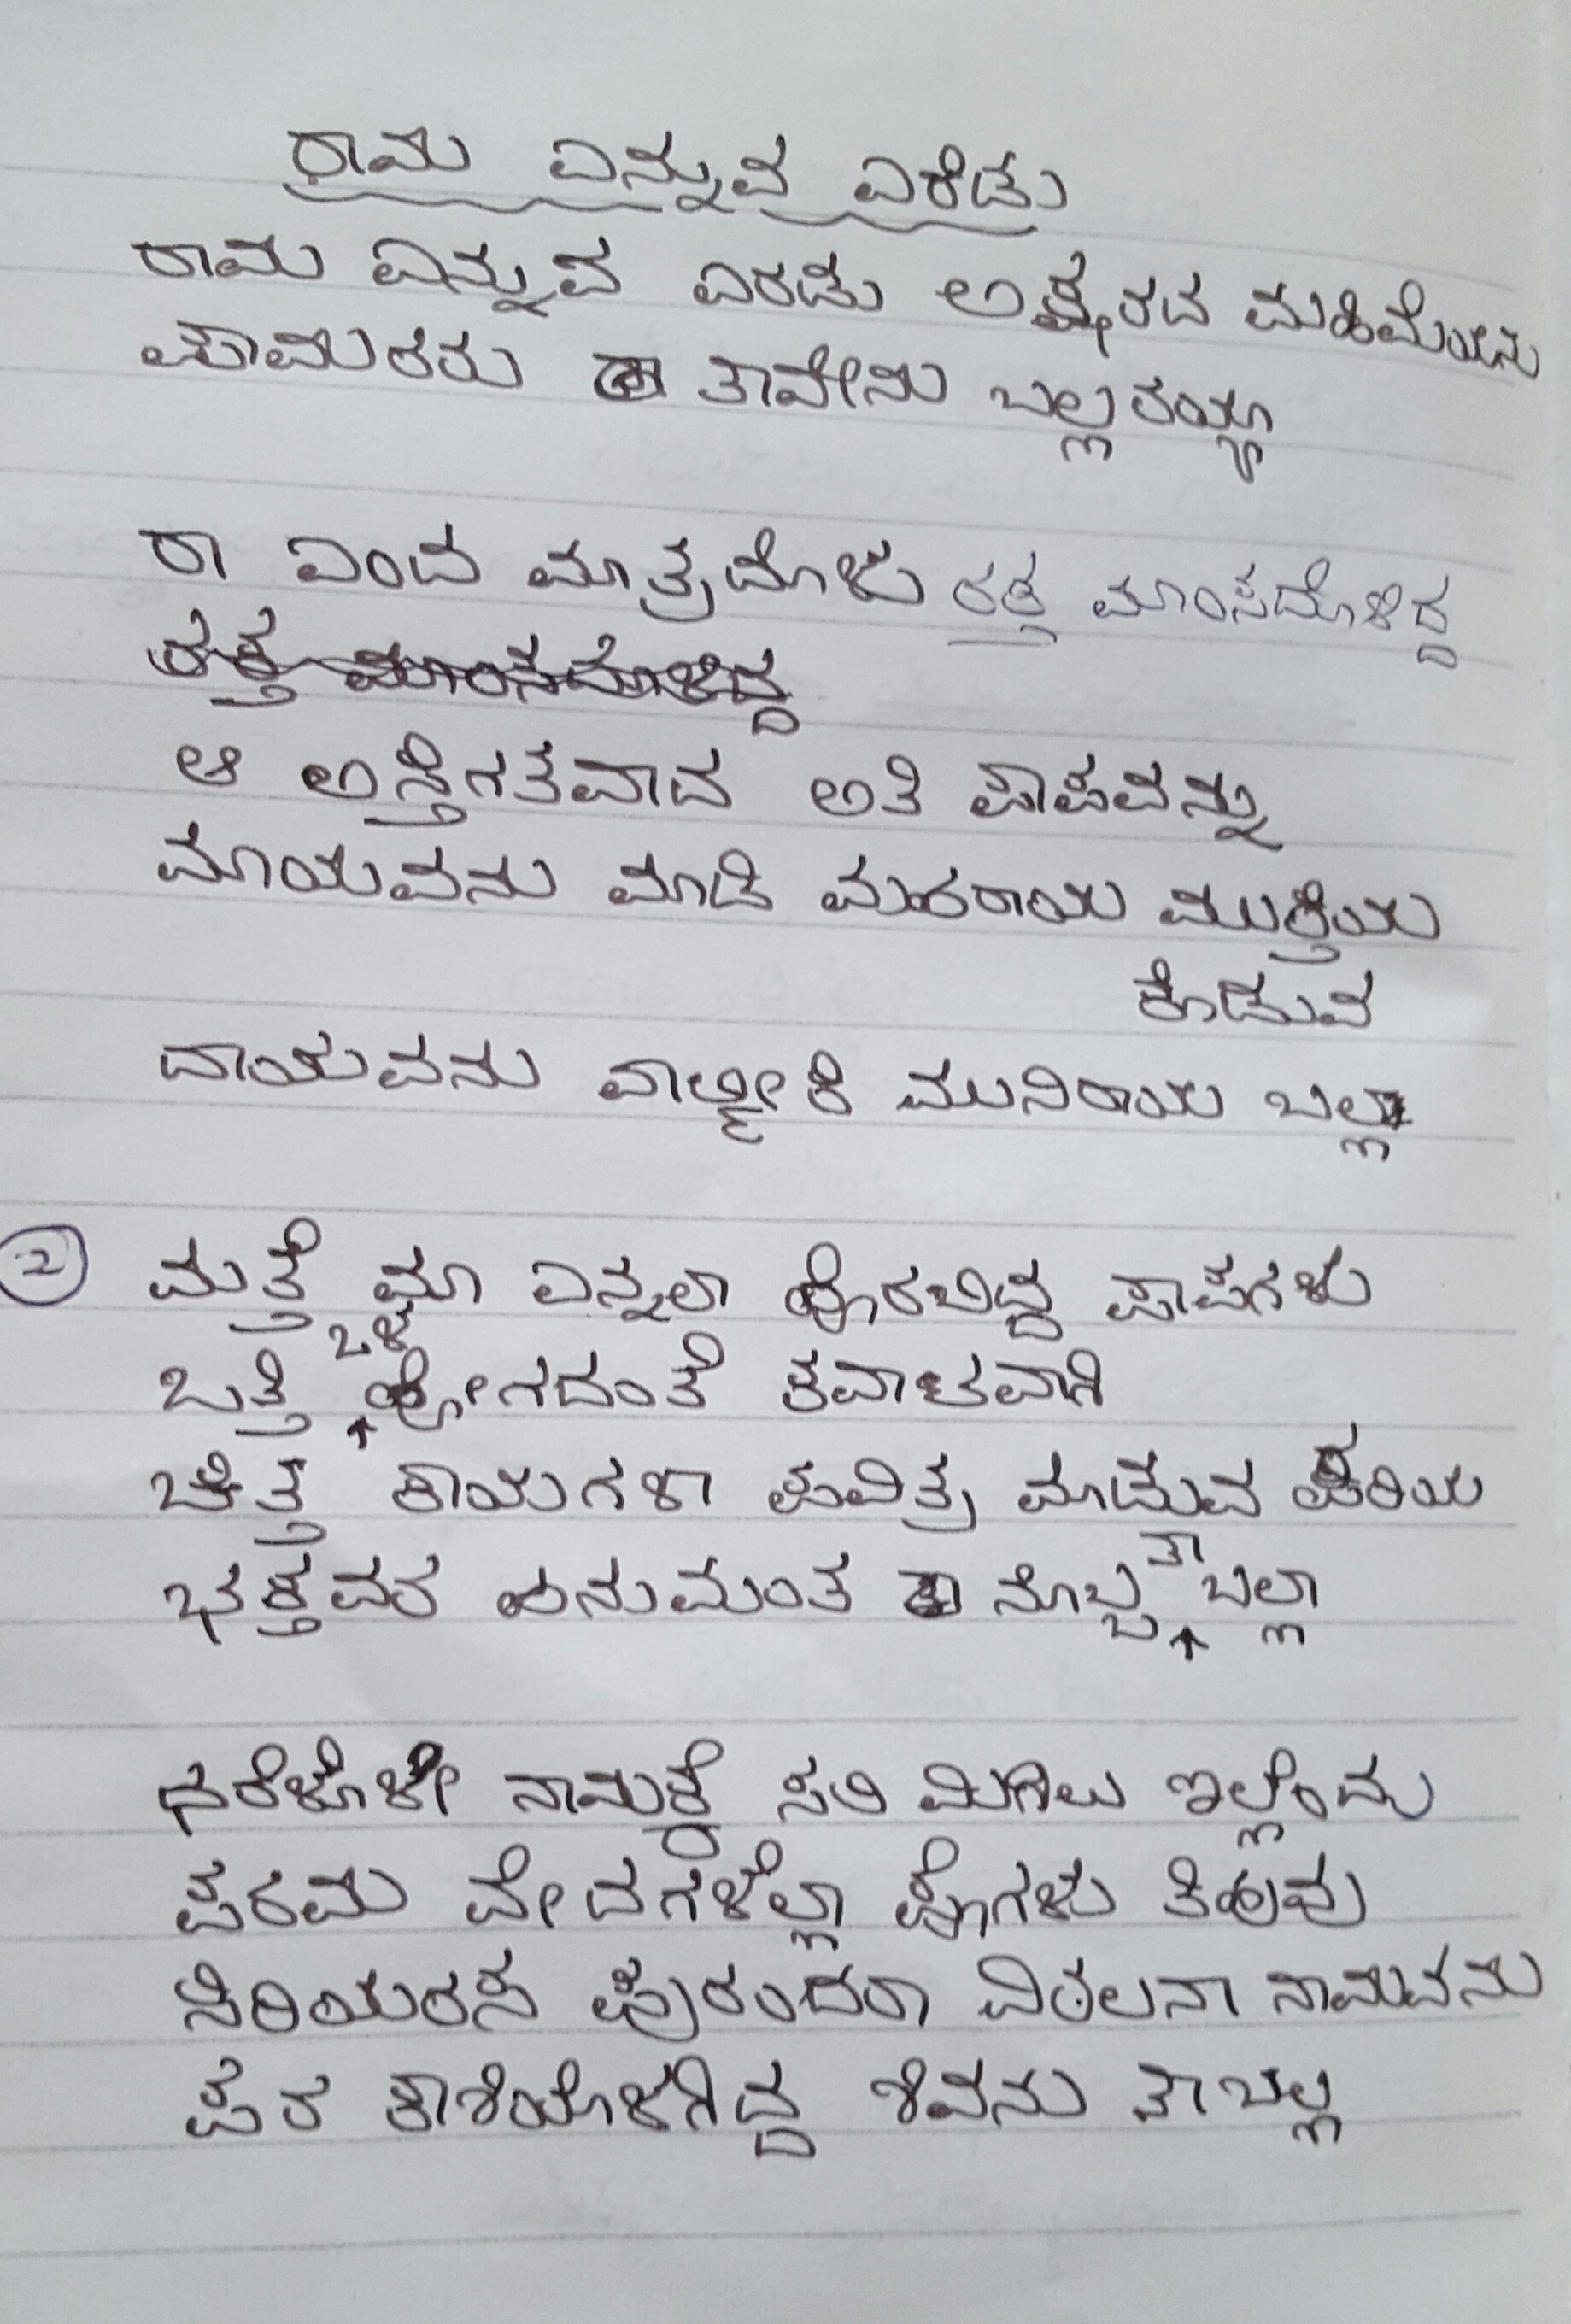 ರಾಮ ಎನ್ನುವ ಎರೆಡು
ರಾಮ ಎನ್ನುವ ಎರಡು ಅಕ್ಷರದ ಮಹಿಮೆಯನು
ಪಾಮರರು ತಾವೇನು ಬಲ್ಲರಯ್ಯಾ
ರಾ ಎಂದ ಮಾತ್ರದೊಳು ರಕ್ತ ಮಾಂಸದೊಳಿದ್ದ
ರಕ್ತ ಮಾಂಸದೊಳಿದ್ದ
ಆ ಅಸ್ತಿಗತವಾದ ಅತಿ ಪಾಪವನ್ನು
ಮಾಯವನು ಮಾಡಿ ಮಹರಾಯ ಮುಕ್ತಿಯ
ಕೊಡುವ
ದಾಯವನು ವಾಲ್ಮೀಕಿ ಮುನಿರಾಯ ಬಲ್ಲಾ
2 ಮತ್ತೆ ಮಾ ಎನ್ನಲಾ ಹೊರಬಿದ್ದ ಪಾಪಗಳು
ಒತ್ತಿ ಒಳ ಹೋಗದಂತೆ ಕವಾಟವಾಗಿ
ಚಿತ್ತ ಕಾಯಗಳಾ ಪವಿತ್ರ ಮಾಡುವ ಪರಿಯ
ಭಕ್ತವರ ಹನುಮಂತ ನೊಬ್ಬ ತಾ ಬಲ್ಲಾ
ಧರೆಳೊಳೇ ನಾಮಕ್ಕೆ ಸರಿ ಮಿಗಿಲು ಇಲ್ಲೆಂದು
ಪರಮ ವೇದಗಳೆಲ್ಲಾ ಪೊಗಳು ತಿಹುವು
ಸಿರಿಯರಸ ಪುರಂದರಾ ವಿಠಲನಾ ನಾಮವನು
ಪರ ಕಾಶಿಯೊಳಗಿದ್ದ ಶಿವನು ತಾ ಬಲ್ಲ